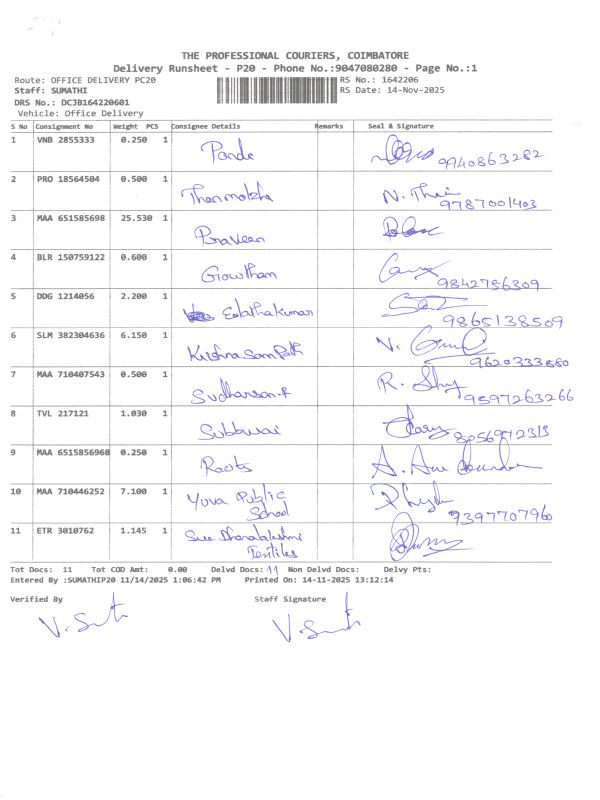 THE PROFESSIONAL COURIERS, COIMBATORE
Delivery Runsheet - P20 - Phone No.:9047080280 - Page No.:1
Route: OFFICE DELIVERY PC20 RS No.: 1642206
Staff: SUMATHI RS Date: 14-Nov-2025
DRS No.: DCJB164220601
Vehicle: Office Delivery
S No Consignment No Weight PCS Consignee Details Remarks Seal & Signature
1 VNB 2855333 0.250 1 Pande 9940863282
2 PRO 18564504 0.500 1 N. 9787001403
3 MAA 651585698 25.530 1 Praveen
4 BLR 150759122 0.600 1 Growtham 9842756309
5 DDG 1214056 2.200 1 Eelathakumar 9865138509
6 SLM 382304636 6.150 1 Krishna Sampath 9620333880
7 MAA 710407543 0.500 1 Sudharson.P R. 9597263266
8 TVL 217121 1.030 1 Subburai
9 MAA 6515856968 0.250 1 Roots A.
10 MAA 710446252 7.100 1 Yuva Public School 9397707960
11 ETR 3010762 1.145 1 Sree Dhanalakshmi Textiles
Tot Docs: 11 Tot COD Amt: 0.00 Delvd Docs: 11 Non Delvd Docs: Delvy Pts:
Entered By :SUMATHIP20 11/14/2025 1:06:42 PM Printed On: 14-11-2025 13:12:14
Verified By Staff Signature